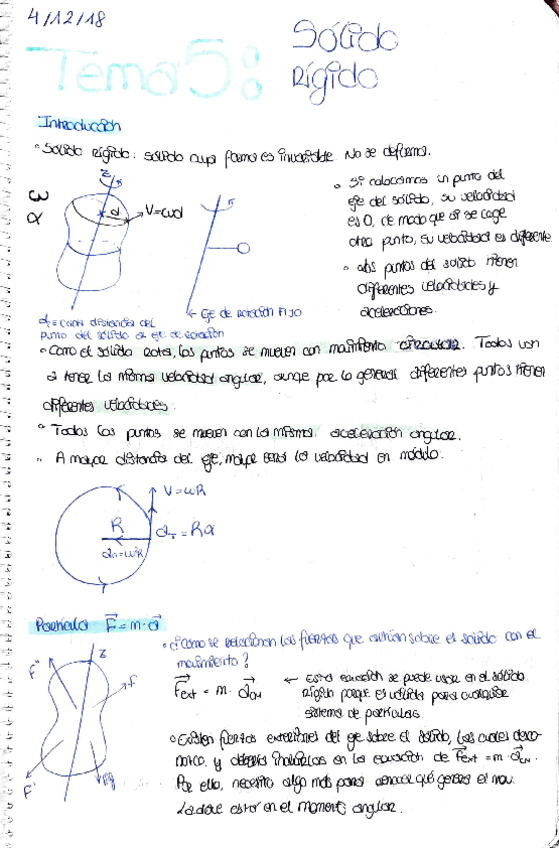 4/12/18
Tema 5:
Sólido
rígido
Introducción
Sólido rígido: sólido cuya forma es invariable. No se deforma.
z
ω
α
d
V=ωd
← Eje de rotación FIJO
d = distancia del
punto del sólido al eje de rotación
Si colocamos un punto del
eje del sólido, su velocidad
es 0, de modo que si se coge
otro punto, su velocidad es diferente
Los puntos del sólido tienen
diferentes velocidades y
aceleraciones.
Como el sólido rota, los puntos se mueven con movimiento circular. Todos van
a tener la misma velocidad angular, aunque por lo general diferentes puntos tienen
diferentes velocidades.
Todos los puntos se mueven con la misma aceleración angular.
A mayor distancia del eje, mayor será la velocidad en módulo.
V=ωR
R
a_T = Rα
a_n=ω²R
Partícula F⃗ = m·a⃗
¿Cómo se relacionan las fuerzas que actúan sobre el sólido con el
movimiento?
z
F''
f
F'
F⃗ext = m· a⃗CM
← Esta ecuación se puede usar en el sólido
rígido porque es válida para cualquier
sistema de partículas
Existen fuerzas exteriores del eje sobre el sólido, las cuales desco-
nozco, y debería incluirlas en la ecuación de F⃗ext = m·a⃗CM.
Por ello, necesito algo más para conocer qué genera el mov.
La clave está en el momento angular.